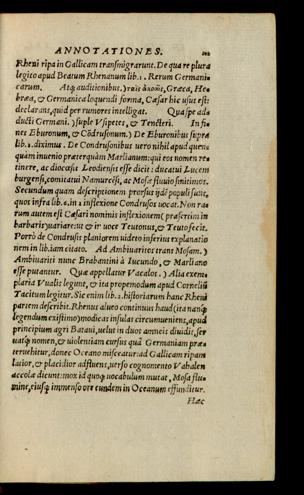 ANNOTATIONES.
Rheni ripa in Gallicam transmigrarunt. De qua re plura
legito apud Beatum Rhenanum lib. 1. Rerum Germani-
carum. Atq; auditionibus.) ταῖς ἀκοαῖς, Græca, He-
bræa, & Germanica loquendi forma, Cæsar hic usus est:
declarans, quid per rumores intelligat. Qua spe ad-
ducti Germani.) suple Vsipetes, & Tencteri. In fi-
nes Eburonum, & Cōdrusonum.) De Eburonibus suprà
lib. 2. diximus. De Condrusonibus uero nihil apud quen-
quàm inuenio præterquàm Marlianum: qui eos nomen re-
tinere, ac diocœsis Leodiensis esse dicit: ducatui Lucem
burgensi, comitatui Namurcēsi, ac Mosæ fluuio finitimos.
Secundum quam descriptionem prorsus ijdē populi sunt,
quos infra lib. 6. in 2 inflexione Condrusos uocat. Non ra-
rum autem est Cæsari nominis inflexionem (præsertim in
barbaris) uariare: ut & ir uocet Teutonus, & Teutofecit.
Porrò de Condrusis planiorem uideto inferius explanatio
nem in lib. iam citato. Ad Ambiuaritos trans Mosam.)
Ambiuariti nunc Brabantini à Iucundo, & Marliano
esse putantur. Quæ appellatur Vacalos.) Alia exem-
plaria Vualis legunt, & ita propemodum apud Corneliū
Tacitum legitur. Sic enim lib. 2. historiarum hanc Rheni
partem describit. Rhenus alueo continuus haud (ita nanq;
legendum existimo) modicas insulas circumueniens, apud
principium agri Bataui, uelut in duos amneis diuidit, ser
uatq; nomen, & uiolentiam cursus quà Germaniam præ-
teruehitur, donec Oceano misceatur: ad Gallicam ripam
latior, & placidior adfluens, uerso cognomento Vahalem
accolæ dicunt: mox id quoq; uocabulum mutat, Mosa flu-
mine, eiusq; immenso ore eundem in Oceanum effunditur.
Hæc